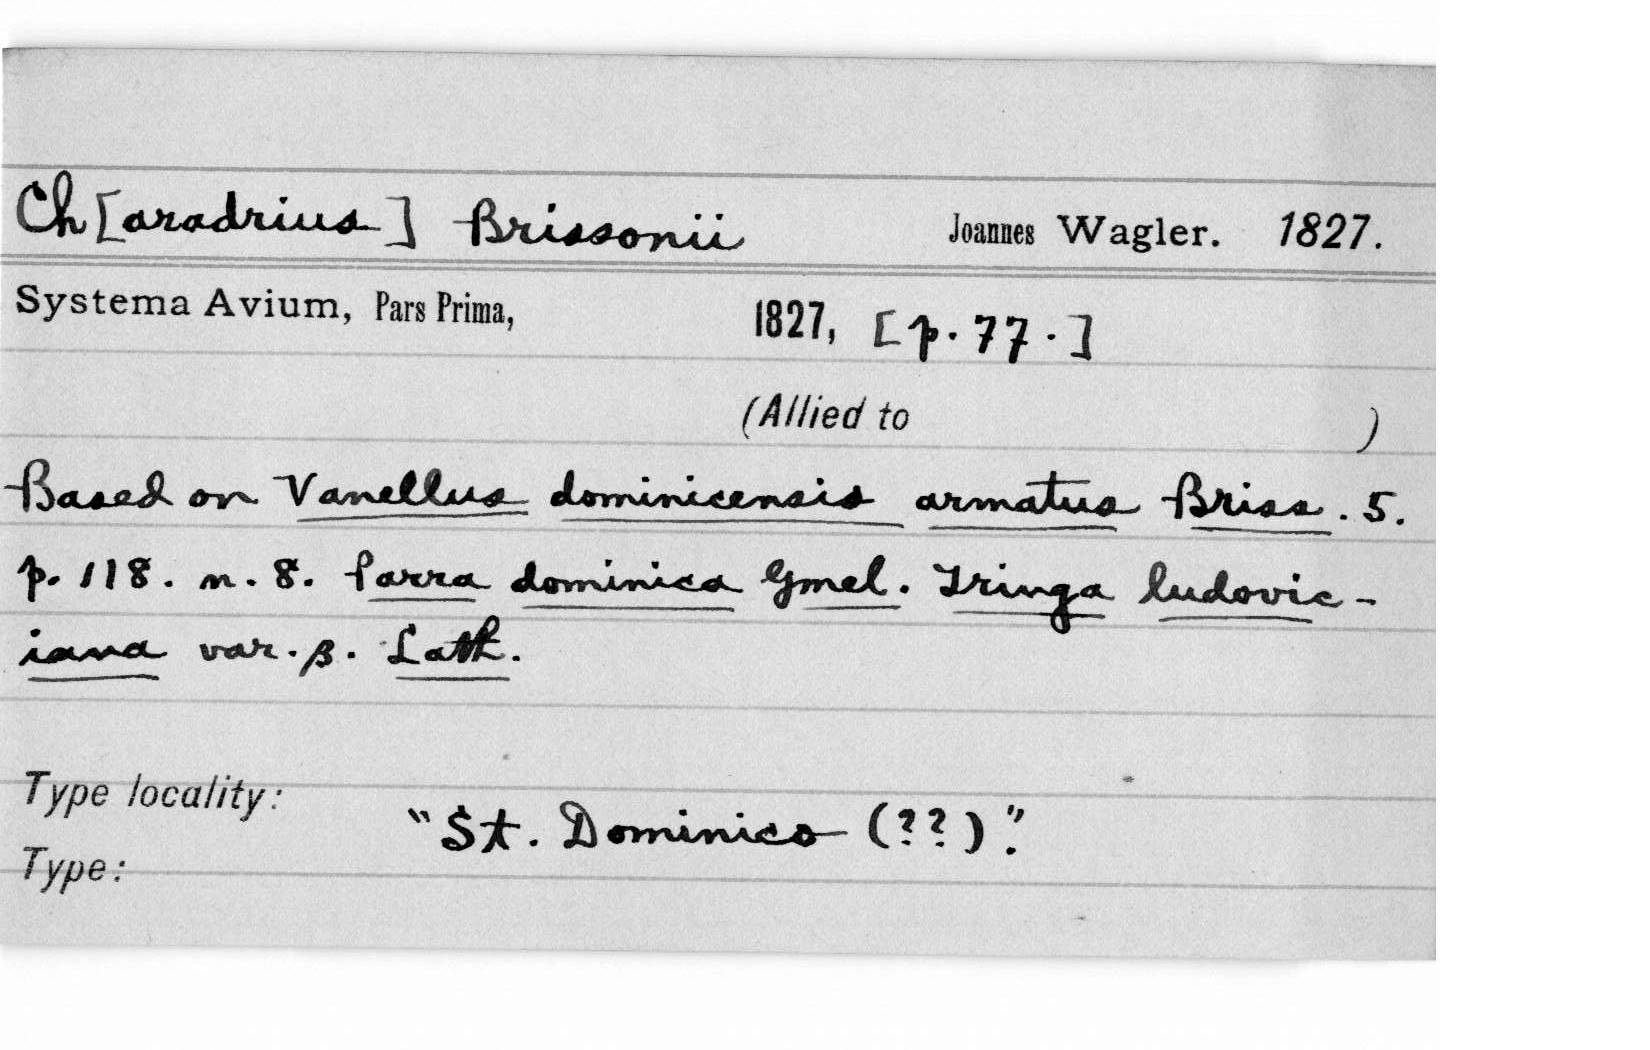 Ch[aradrius] Brissonii Joannes Wagler. 1827.
Systema Avium, Pars Prima, 1827, [p. 77.]
(Allied to )
Based on Vanellus dominicensis armatus Briss. 5.
p. 118. n. 8. Parra dominica Gmel. Tringa ludovic-
iana var. β. Lath.
Type locality:
"St. Dominico (??)."
Type: